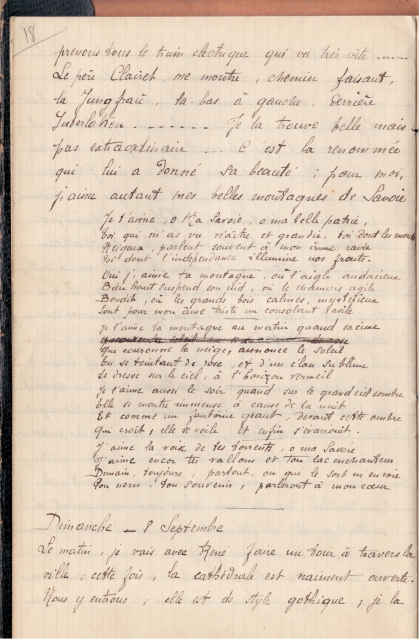 18
prenons tous le train électrique qui va très vite ......
Le père Clairet me montre, chemin faisant,
la Jungfrau, là-bas à gauche, derrière
Interlaken ------- Je la trouve belle mais
pas extraordinaire ... C'est la renommée
qui lui a donné sa beauté ; pour moi,
j'aime autant mes belles montagnes de Savoie
Je t'aime, o Ma Savoie, o ma belle patrie,
Toi qui m'as vu naître et grandir, toi dont les monts
Neigeux, parlent souvent à mon âme ravie
Toi dont l'indépendance illumine nos fronts.
Oui j'aime ta montagne où l'aigle audacieux
Bien haut suspend son nid, où le chamois agile
Bondit, où les grands bois calmes, mystérieux
Sont pour mon âme triste un consolant asile
Je l'aime ta montagne au matin quand sa cime
Que couronne la neige, annonce le soleil
En se teintant de rose, et d'un élan sublime
Se dresse sur le ciel, à l'horizon vermeil
Je t'aime aussi le soir quand sur le grand ciel sombre
Elle se montre immense à cause de la nuit
Et comme un fantôme géant, devant cette ombre
qui croît, elle se voile et enfin s'évanouit.
J'aime la voix de tes torrents, o ma Savoie
J'aime encor tes vallons et ton lac enchanteur
Demain, toujours, partout, ou que le sort m'envoie
Ton nom, Ton souvenir, parleront à mon cœur
Dimanche - 8 Septembre
Le matin, je vais avec René faire un tour à travers la
ville ; cette fois, la cathédrale est vraiment ouverte.
Nous y entrons ; elle est de style gothique ; je la